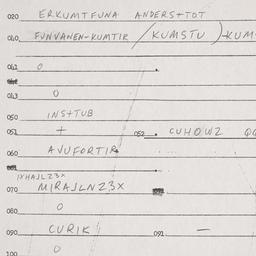 020 ERKUMTFUNA ANDERS+TOT
040 FUNVANEN-KUMTIR / KUMSTU ) -KUM
041 0
043 0
050 INS+TUB
051 + 052 CUHOWZ
060 AVUFORTIR
1XHAJLZ3X
070 MIRAJLNZ3X
080 0
090 CURIK 091 —
100 0